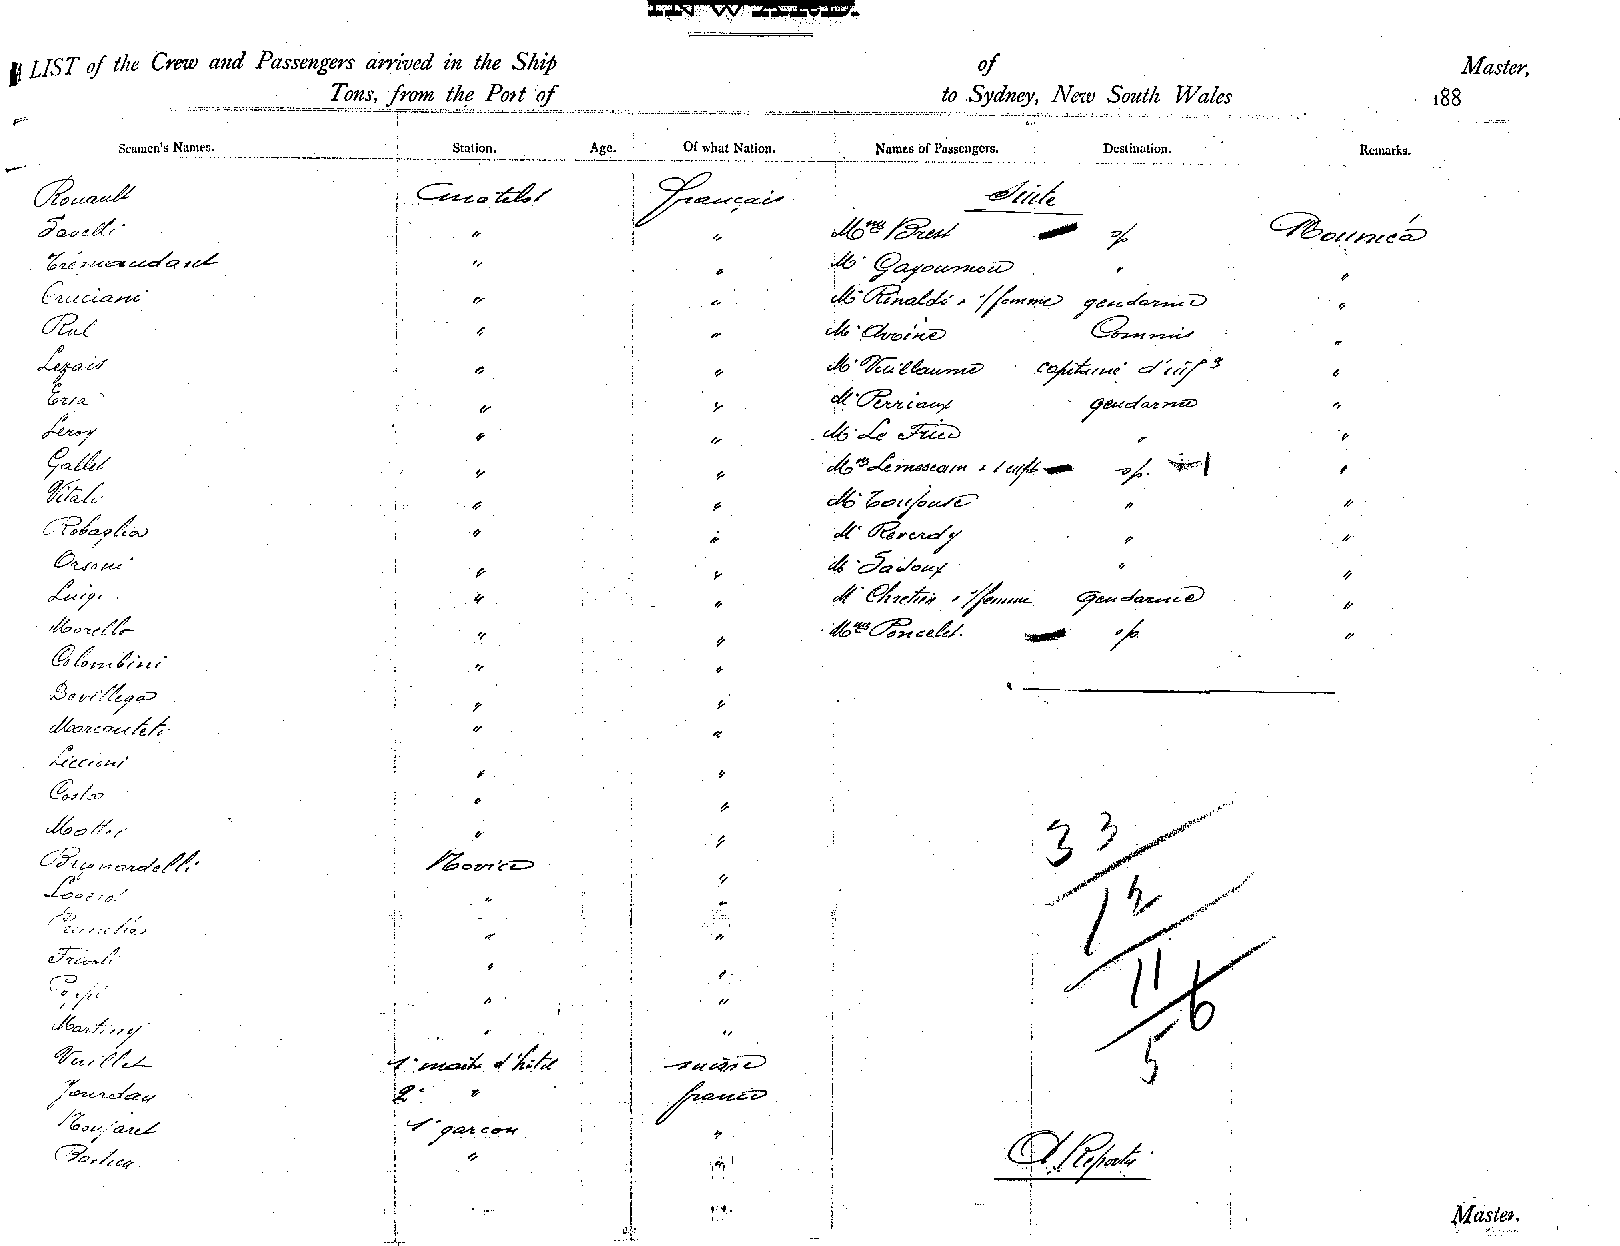 INWARD.
LIST of the Crew and Passengers arrived in the Ship of Master,
Tons, from the Port of to Sydney, New South Wales 188
Seamen's Names. Station. Age. Of what Nation. Names of Passengers. Destination. Remarks.
Rouault matelot français Suite
Savelli " " Mme Brest s/p Nouméa
Trémaudant " " Mr Gayoumou " "
Cruciani " " Mr Rinaldi & s/femme gendarme "
Ral " " Mr Avoine Commis "
Lezais " " Mr Vuillaume capitaine d'inf "
Ersa " " Mr Perriaux gendarme "
Leroy " " Mr Le " "
Gallet " " Mme & 1 enft s/p. "
Vitali " " Mr Toujouse " "
Robaglia " " Mr Reverdy " "
Orsoni " " Mr Sadoux " "
Luigi " " Mr Chretien & s/femme gendarme "
Morello " " Mme Poncelet. s/p "
Colombini " "
Devillega " "
Marcanteti " "
Liccioni " "
Costa " "
Mattei " "
Brignardelli Novice "
" "
" "
" "
" "
Martiny " "
Vuillet 1r maitre d'hôtel suisse
Jourdan 2e " france
Noujaret 1r garçon "
"
33
12
11
6
5
A Reporter
Master.